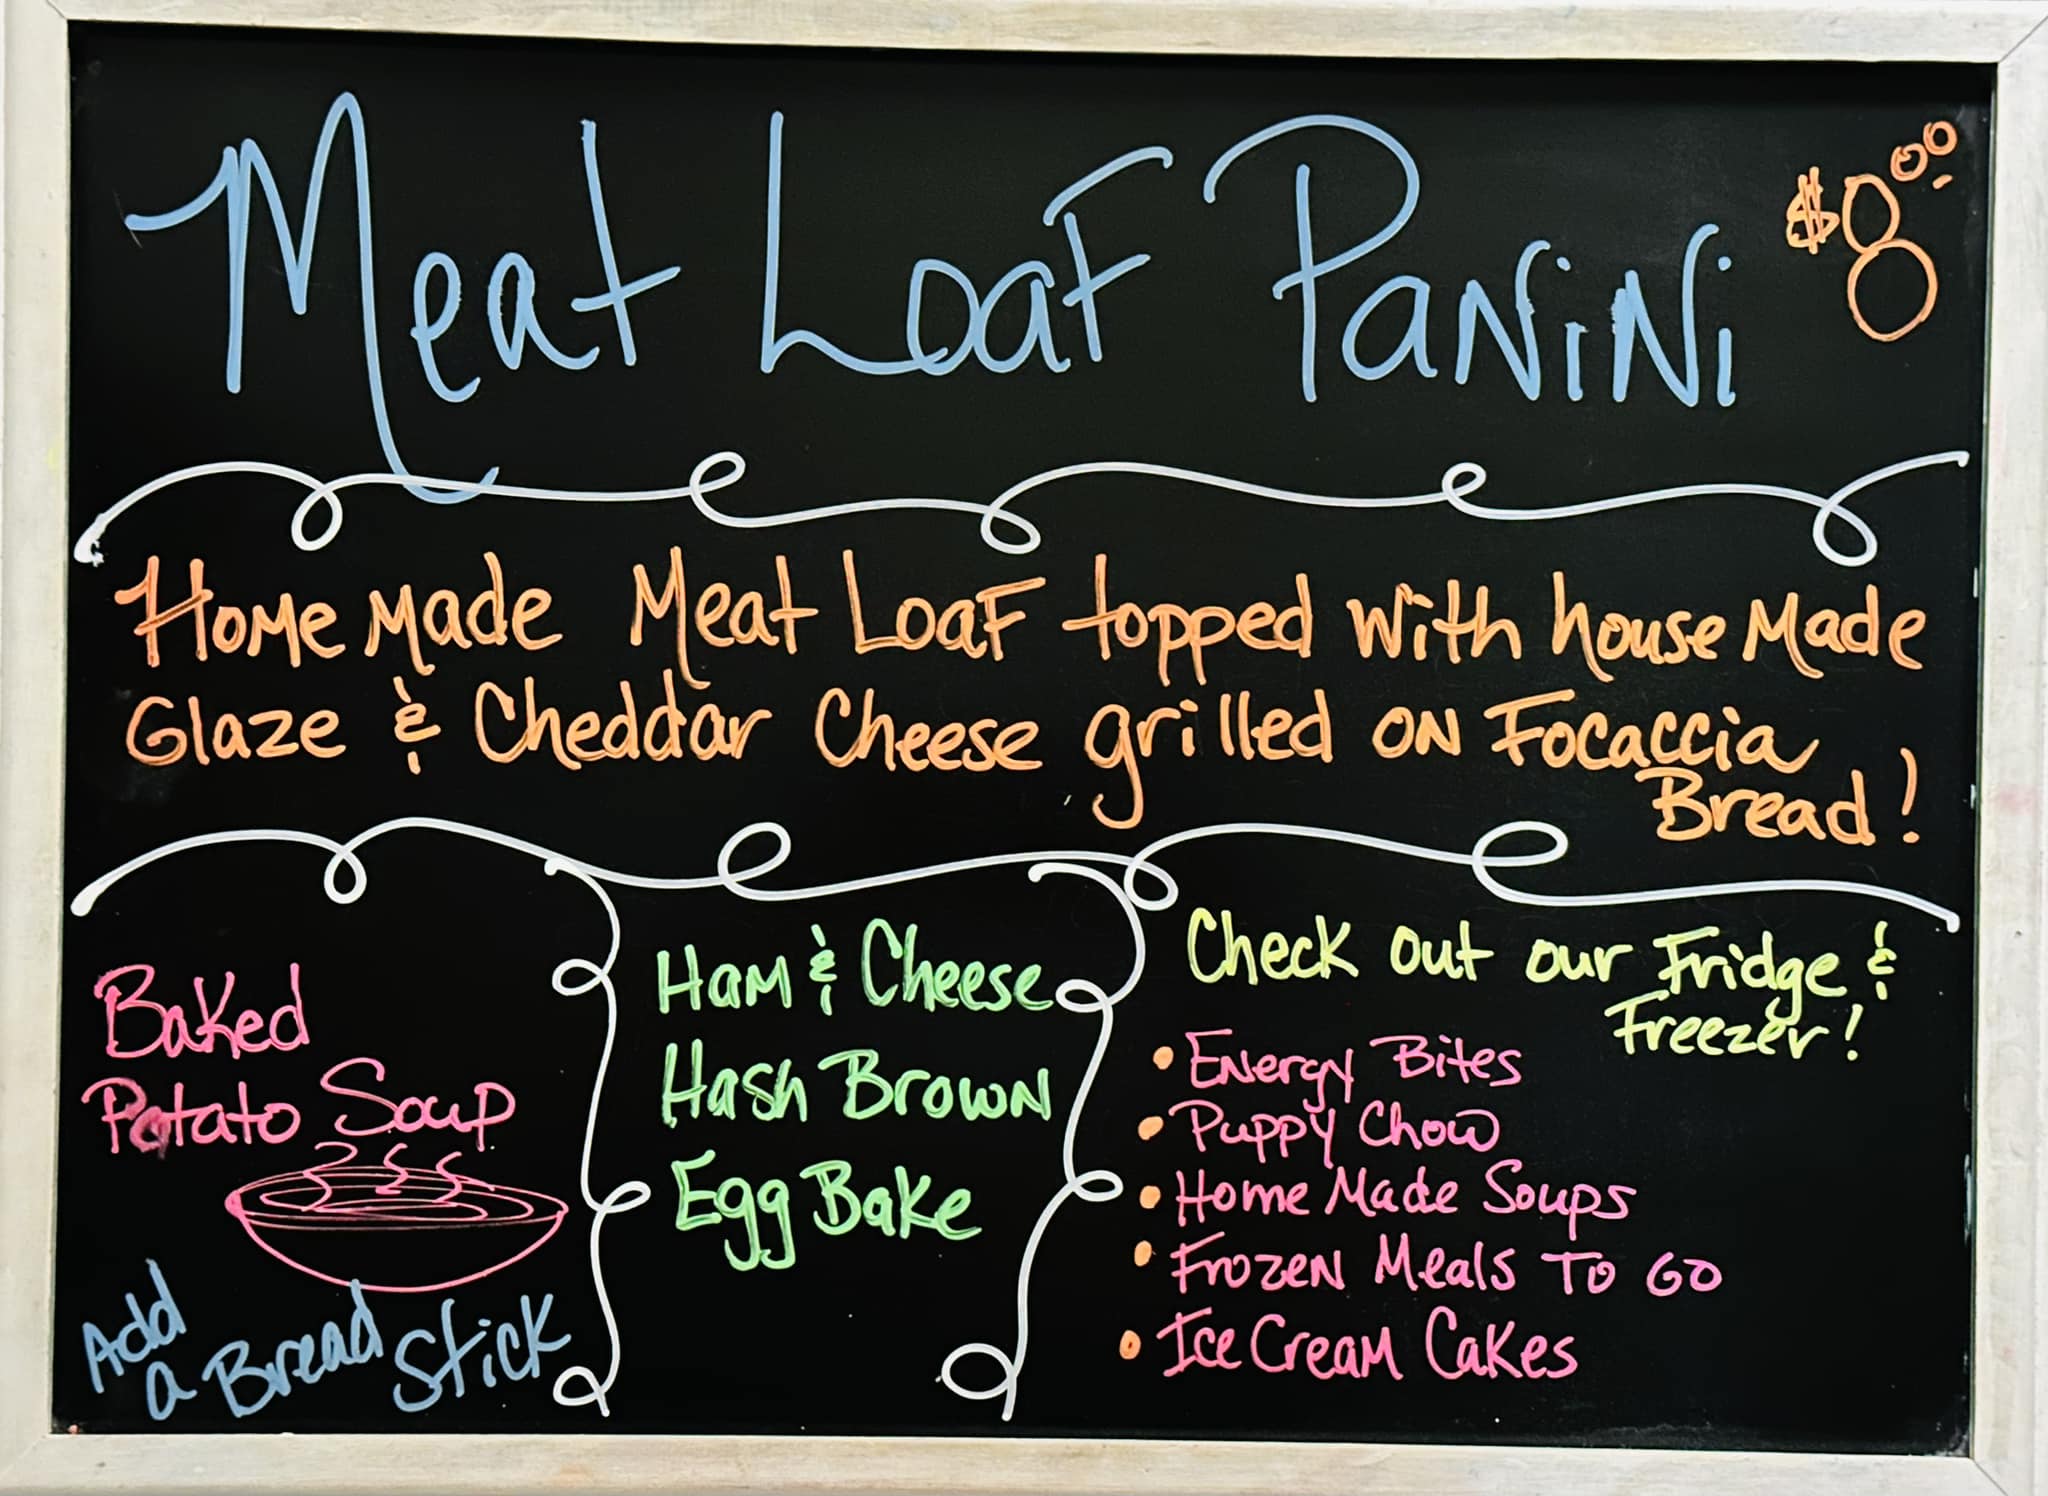 Meat Loaf Panini $8.00
Home Made Meat Loaf topped with house Made
Glaze & Cheddar Cheese grilled on Focaccia
Bread!
Baked
Potato Soup
Add
a Bread Stick
Ham & Cheese
Hash Brown
Egg Bake
Check out our Fridge &
Freezer!
• Energy Bites
• Puppy Chow
• Home Made Soups
• Frozen Meals To Go
• Ice Cream Cakes